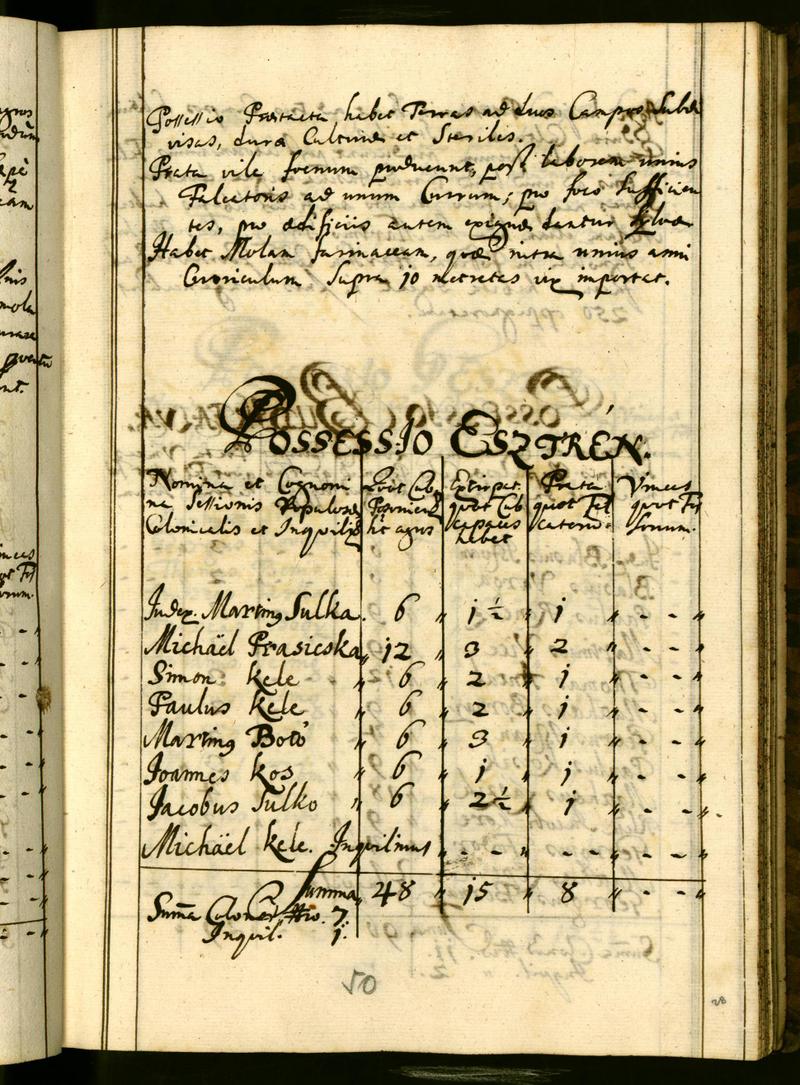 Possessio Praetacta habet Terras ad duos Campos Subdi
visas, durae Culturae et Steriles.
Prata vile foenum producunt, post laborem unius
Falcatoris ad unum Currum; pro foco sufficien
tes, pro aedificiis autem exiguae dantur sylvae
Habet Molam farinaceam, quae intra unius anni
Curriculum supra 10 metretas vix importat.
POSSESSIO ESZTRÉN.
Nomina et Cognomi
na Sessionis Populorum
Colonicalis et Inquilin
Quot Cub
hic agros
Extirpat.
quot Cub
capaces
habet
Prata
quot Fal
catorum
Vineas
quot Fos
sorum.
Judex. Martin9 Sulka. 6 „ 1 ½ „ 1 „ - - „
Michäel Prasicska „ 12 „ 3 „ 2 „ - - „
Simon kele „ 6 „ 2 „ 1 „ - - „
Paulus kele „ 6 „ 2 „ 1 „ - - „
Martin9 Boto „ 6 „ 3 „ 1 „ - - „
Joannes kos „ 6 „ 1 „ 1 „ - - „
Jacobus Sulko „ 6 „ 2 ½ „ 1 „ - - „
Michäel kele. Inquilinus „ - - „ - - „ - - „
Summa „ 48 „ 15 „ 8 „ - - „
Sum̄a Colonor. 7.
Inquil. 1.
50
28